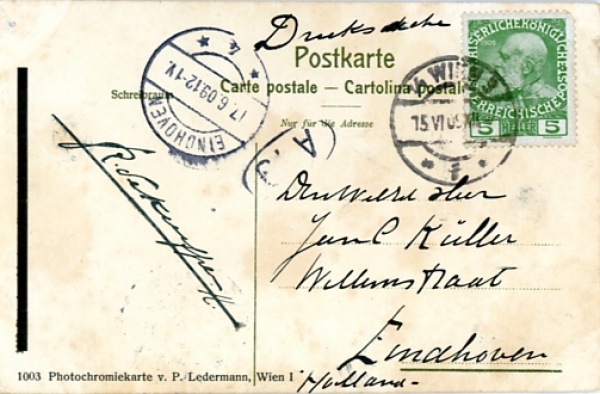 Drucksache
Postkarte
Carte postale — Cartolina postale
Schreibraum
Nur für die Adresse
EINDHOVEN
17.6.09.12-1V.
4
WIEN
15 VI 09
KAISERLICHE KÖNIGLICHE ÖSTERREICHISCHE
1908
5 HELLER 5
Jan C Küller
Willemstraat
Eindhoven
Holland-
1003 Photochromiekarte v. P. Ledermann, Wien I